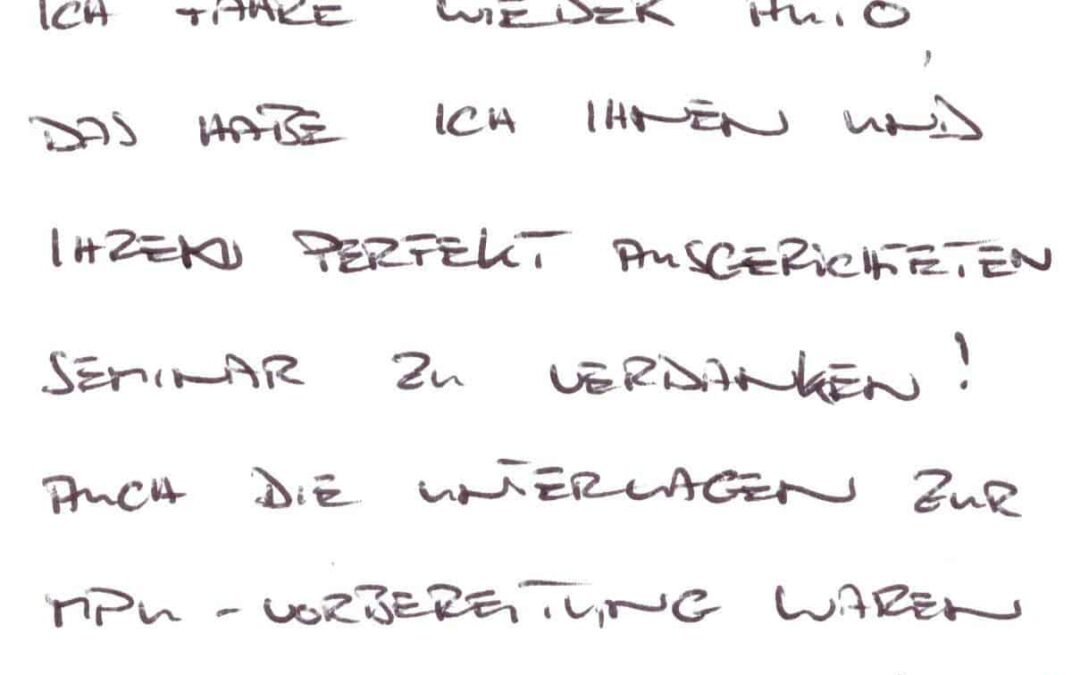 ICH FAHRE WIEDER AUTO,
DAS HABE ICH IHNEN UND
IHREM PERFEKT AUSGERICHTETEN
SEMINAR ZU VERDANKEN!
AUCH DIE UNTERLAGEN ZUR
MPU-VORBEREITUNG WAREN